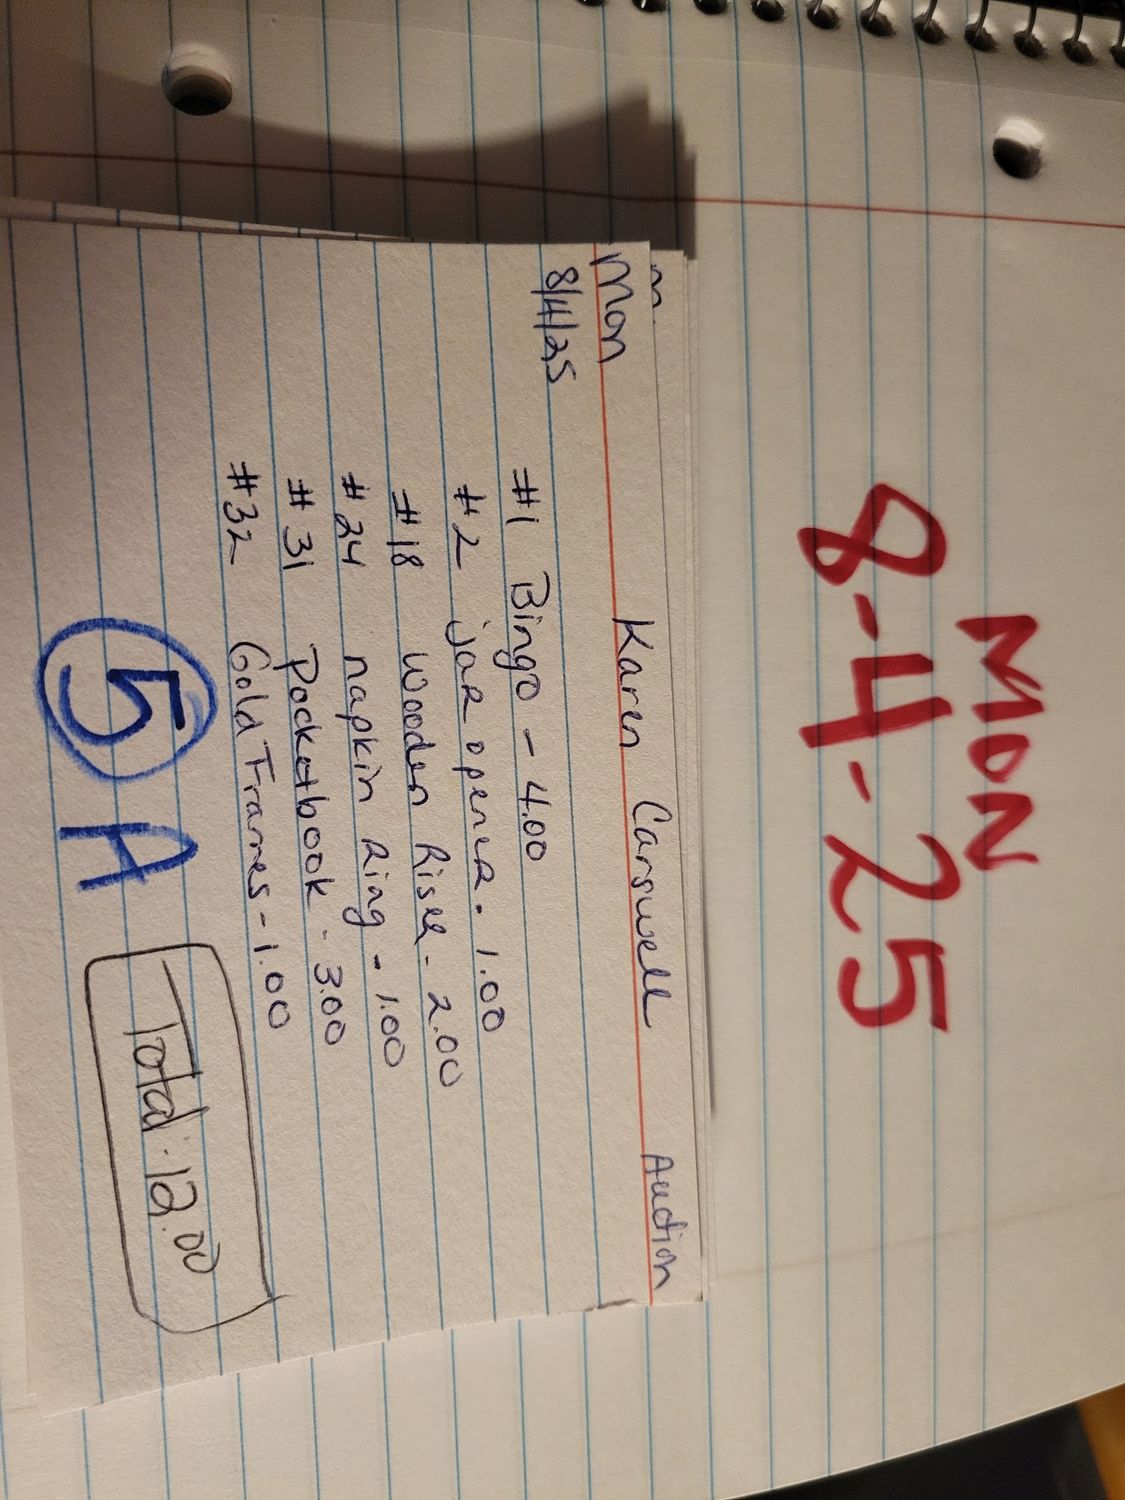 MON
8-4-25
m.
Mon Karen Carswell Auction
8/4/25
#1 Bingo - 4.00
#2 jar opener - 1.00
#18 Wooden Riser - 2.00
#24 napkin Ring - 1.00
#31 Pocketbook - 3.00
#32 Gold Frames - 1.00
5 A
Total 12.00